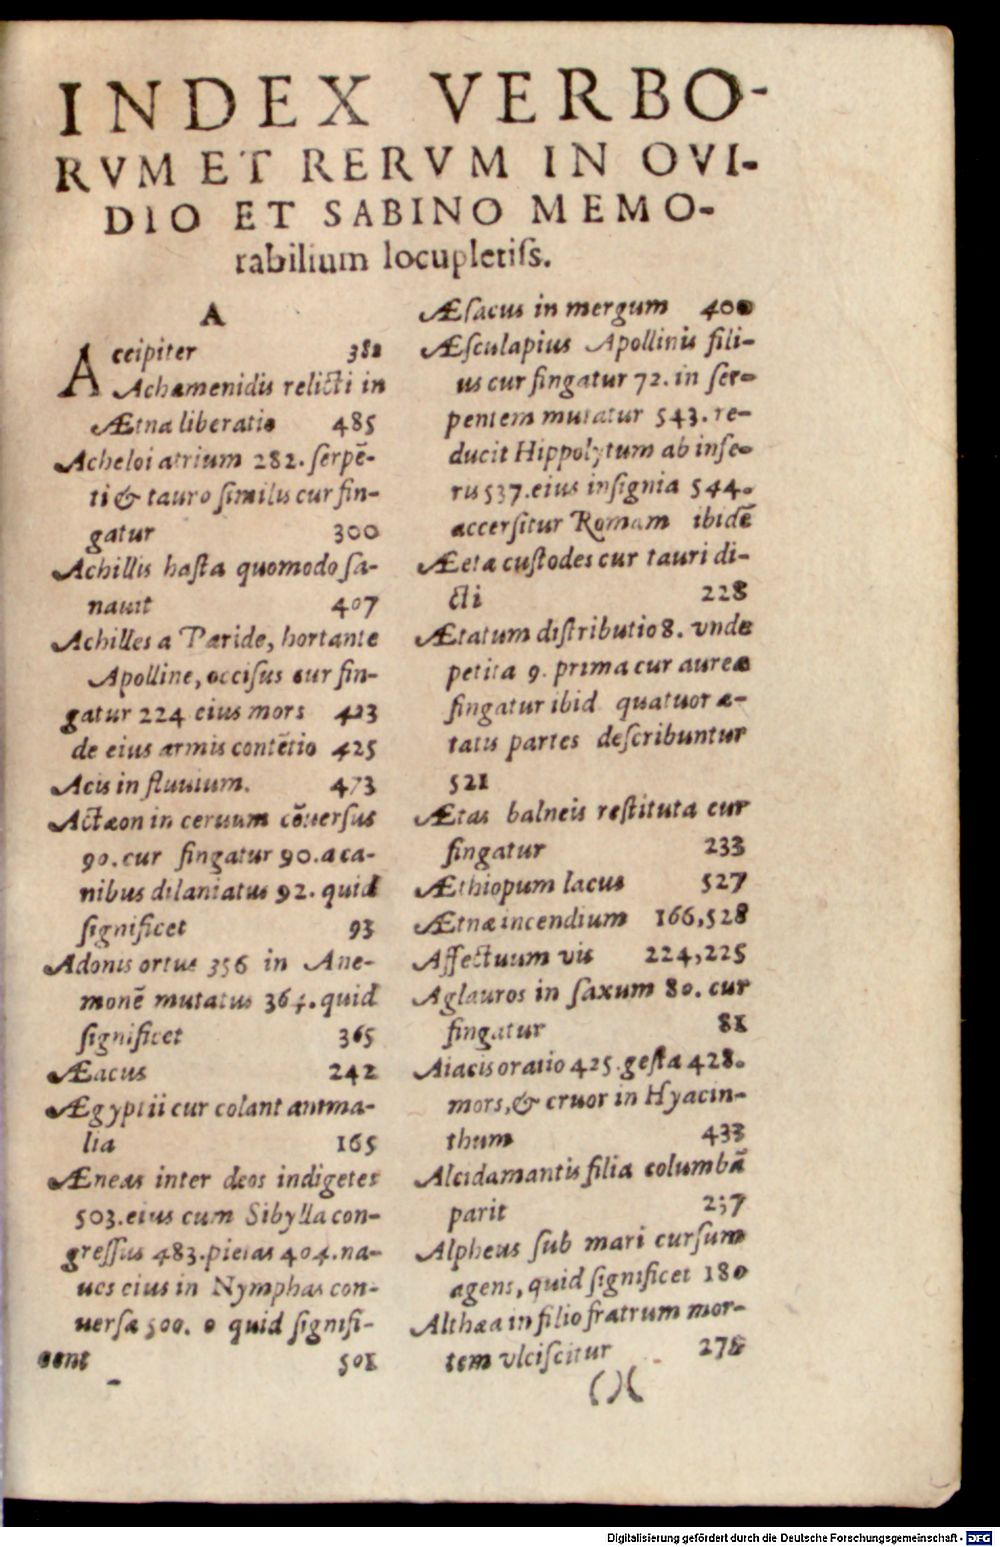 INDEX VERBO-
RVM ET RERVM IN OVI-
DIO ET SABINO MEMO-
rabilium locupletiſs.
A
Acceipiter 382
Achæmenidis relicti in
Ætna liberatio 485
Acheloi atrium 282. ſerpē-
ti & tauro ſimilis cur fin-
gatur 300
Achillis haſta quomodo ſa-
nauit 407
Achilles a Paride, hortante
Apolline, occiſus cur fin-
gatur 224 eius mors 423
de eius armis contētio 425
Acis in fluuium. 473
Actæon in ceruum cōuerſus
90. cur fingatur 90. a ca-
nibus dilaniatus 92. quid
ſignificet 93
Adonis ortus 356 in Ane-
monē mutatus 364. quid
ſignificet 365
Æacus 242
Ægyptii cur colant anima-
lia 165
Æneas inter deos indigetes
503. eius cum Sibylla con-
greſſus 483. pietas 404. na-
ues eius in Nymphas con-
uerſæ 500. quid ſignifi-
cent 501
Æſacus in mergum 400
Æſculapius Apollinis fili-
us cur fingatur 72. in ſer-
pentem mutatur 543. re-
ducit Hippolytum ab infe-
ris 537. eius inſignia 544.
accerſitur Romam ibidē
Æetæ cuſtodes cur tauri di-
cti 228
Ætatum diſtributio 8. vnde
petita 9. prima cur aurea
fingatur ibid quatuor æ-
tatis partes deſcribuntur
521
Ætas balneis reſtituta cur
fingatur 233
Æthiopum lacus 527
Ætnæ incendium 166,528
Affectuum vis 224,225
Aglauros in ſaxum 80. cur
fingatur 81
Aiacis oratio 425. geſta 428.
mors, & cruor in Hyacin-
thum 433
Alcidamantis filia columbā
parit 237
Alpheus ſub mari curſum
agens, quid ſignificet 180
Althæa in filio fratrum mor-
tem vlciſcitur 278
)(
Digitalisierung gefördert durch die Deutsche Forschungsgemeinschaft - DFG